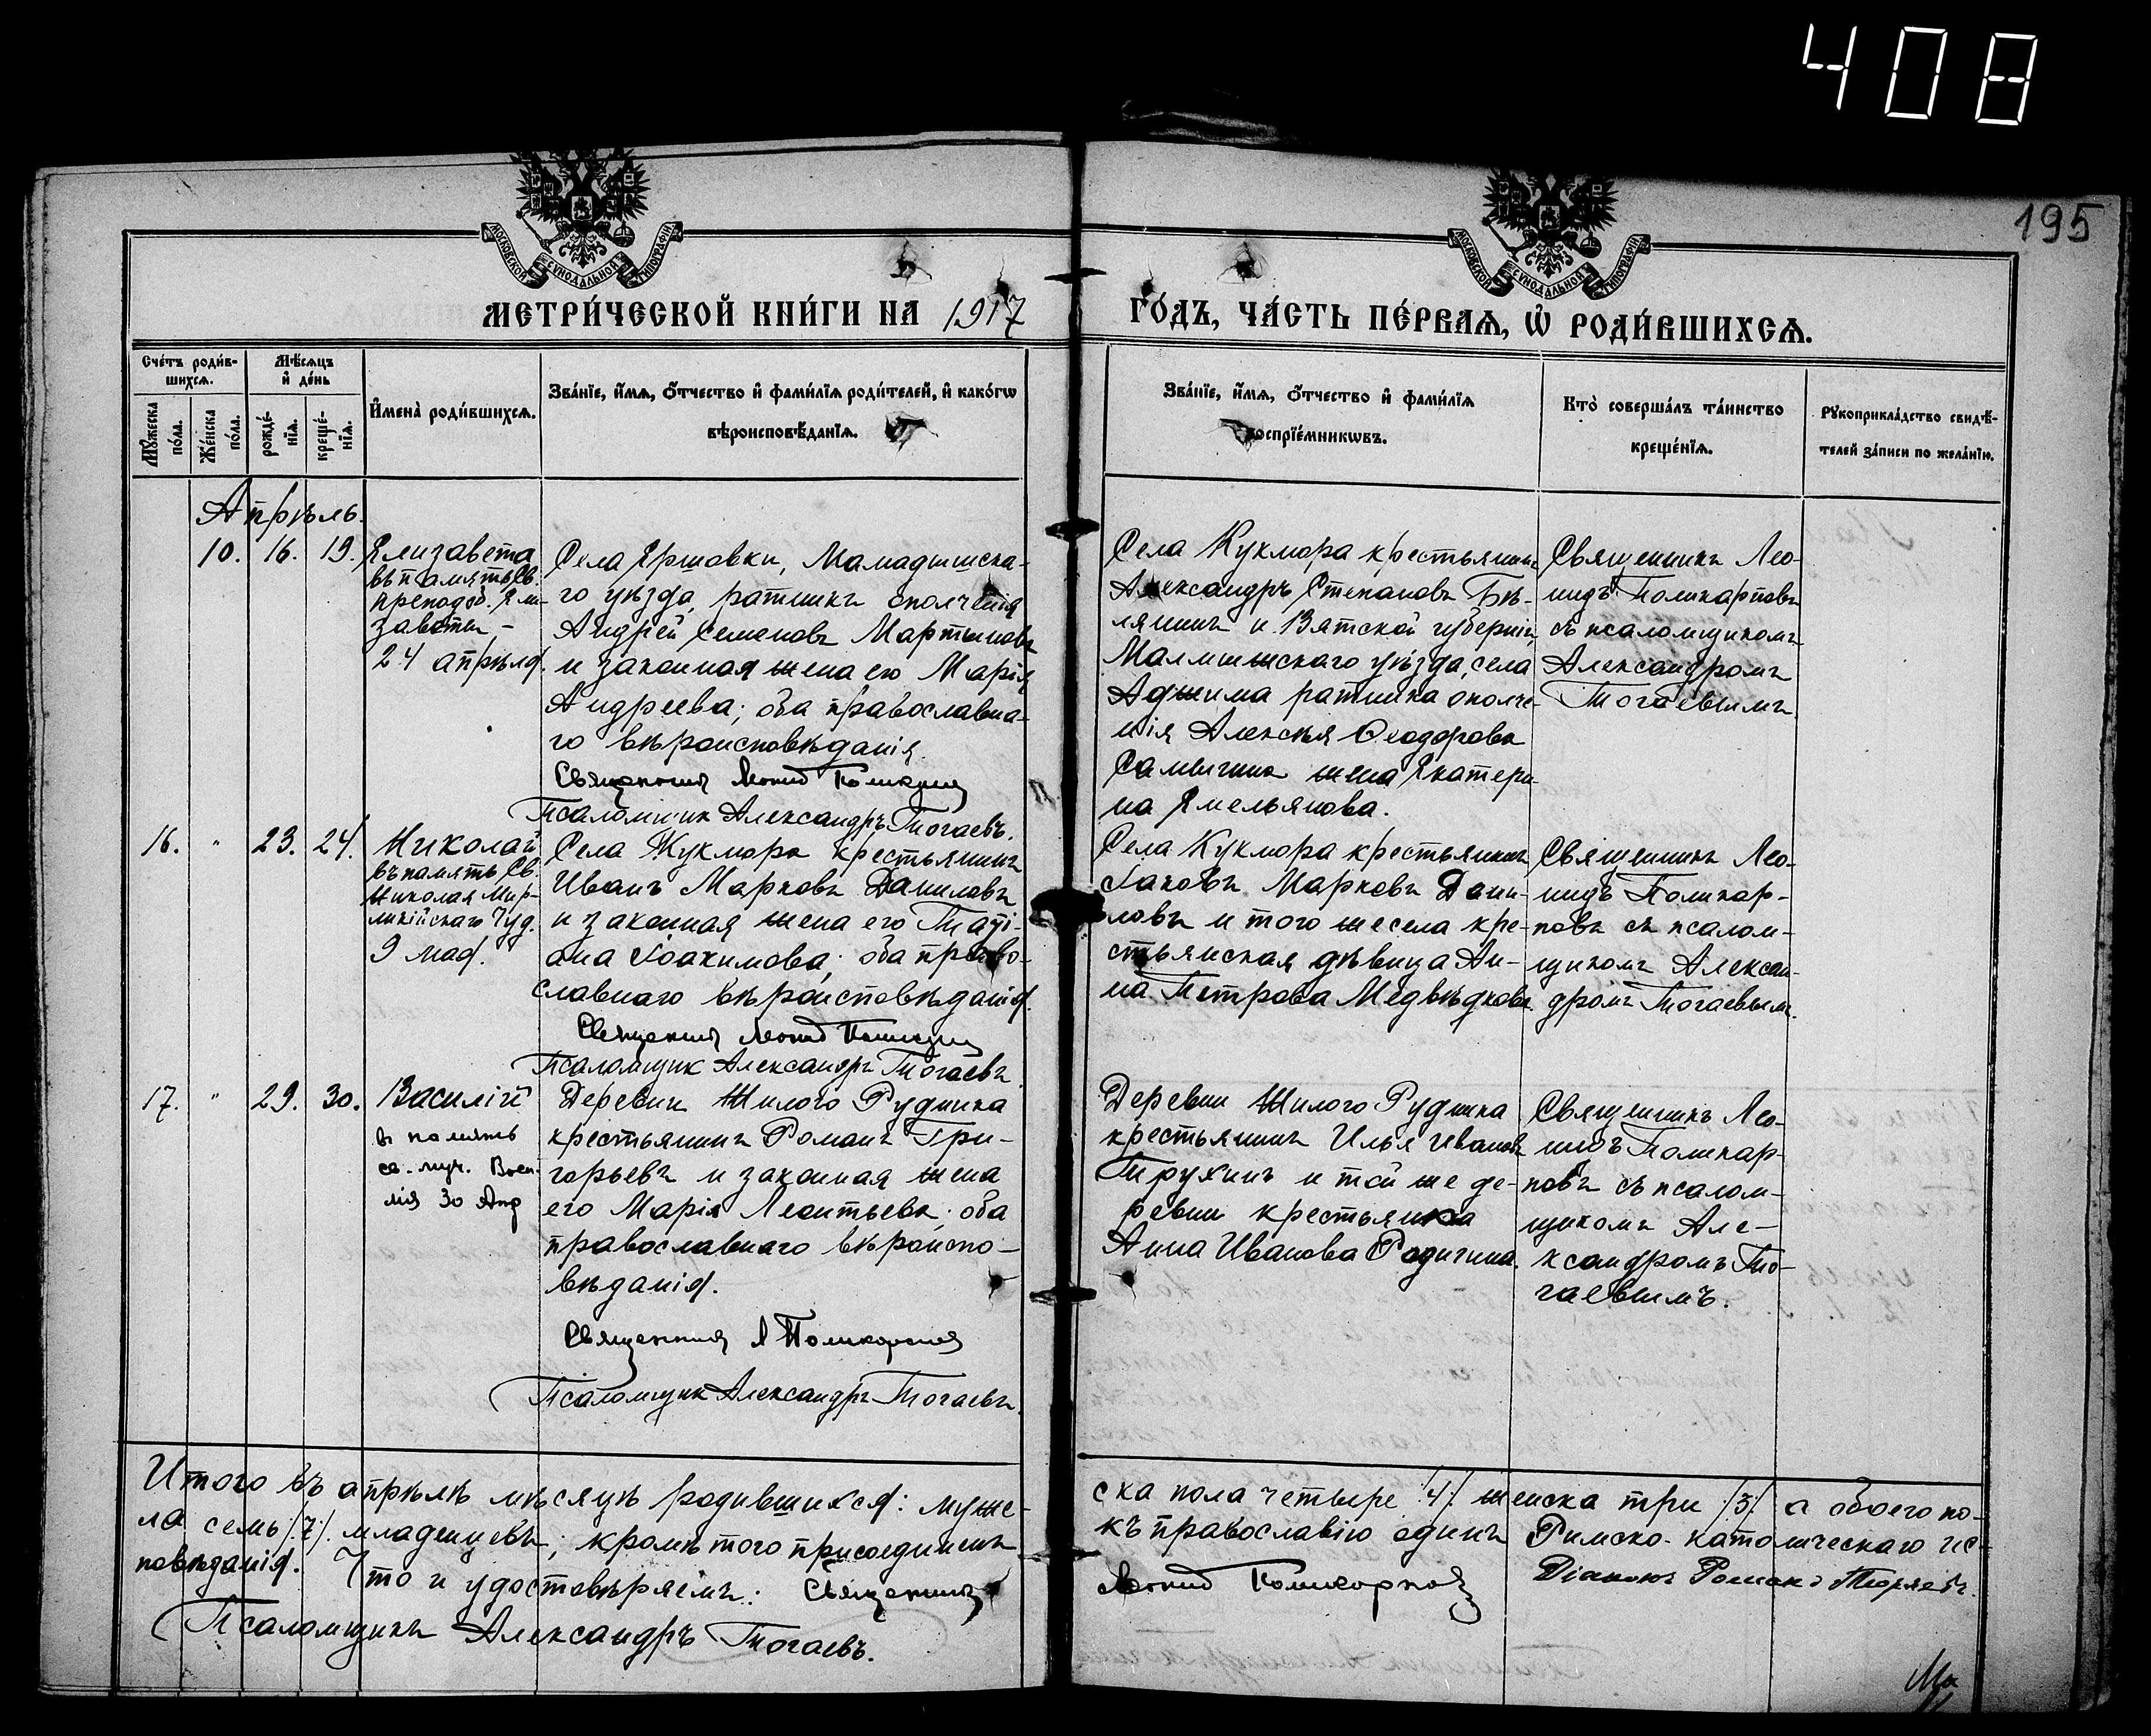 408
195
МОСКОВСКОЙ СУНОДАЛЬНОЙ ТИПОГРАФІИ
МОСКОВСКОЙ СУНОДАЛЬНОЙ ТИПОГРАФІИ
МЕТРИ́ЧЕСКОЙ КНИ́ГИ НА 1917 ГО́ДЪ, ЧА́СТЬ ПЕ́РВАѦ, Ѡ҆ РОДИ́ВШИХСѦ.
Счетъ роди́в-
шихсѧ.
Мѣ́сѧцъ
и҆ де́нь
Мꙋ́жеска
по́ла.
Же́нска
по́ла.
рожде́-
нїѧ.
креще́-
нїѧ.
И҆мена̀ роди́вшихсѧ.
Зва́нїе, и҆́мѧ, ѻ҆́тчество и҆ фами́лїѧ роди́телей, и҆ како́гѡ
вѣроисповѣ́данїѧ.
Зва́нїе, и҆́мѧ, ѻ҆́тчество и҆ фами́лїѧ
воспрїе́мникѡвъ.
Кто̀ соверша́лъ та́инство
креще́нїѧ.
Рꙋкоприкла́дство свидѣ́-
телей за́писи по жела́нїю.
Апрѣль.
10. 16. 19.
Елизавета
въ память Св.
преподоб. Ели-
заветы, -
24 апрѣля.
Села Ершовки, Мамадышска-
го уѣзда, ратникъ ополченія
Андрей Семеновъ Мартыновъ
и законная жена его Марія
Андреева; оба православна-
го вѣроисповѣданія.
Священникъ Леонид Поликарповъ
Псаломщик Александръ Тогаевъ.
Села Кукмора крестьянинъ
Александръ Степановъ Бѣ-
ляшинъ и Вятской губерніи,
Малмыжскаго уѣзда, села
Аджима ратника ополче-
нія Алексѣя Ѳеодорова
Самыгина жена Екатери-
на Емельянова.
Священникъ Лео-
нидъ Поликарповъ
съ псаломщикомъ
Александромъ
Тогаевымъ.
16. " 23. 24.
Николай
въ память Св.
Николая Мир-
ликійскаго Чуд.
9 мая.
Села Кукмора крестьянинъ
Иванъ Марковъ Даниловъ
и законная жена его Таті-
ана Іоакимова; оба право-
славнаго вѣроисповѣданія.
Священникъ Леонид Поликарповъ
Псаломщик Александръ Тогаевъ
Села Кукмора крестьянинъ
Іаковъ Марковъ Дани-
ловъ и того же села кре-
стьянская дѣвица Ан-
на Петрова Медвѣдкова.
Священникъ Лео-
нидъ Поликар-
повъ съ псалом-
щикомъ Алексан-
дромъ Тогаевымъ.
17. " 29. 30.
Василій
в память
св. муч. Васи-
лія 30 Апр
Деревни Жилого Рудника
крестьянинъ Романъ Гри-
горьевъ и законная жена
его Марія Леонтьева; оба
православнаго вѣроиспо-
вѣданія.
Священникъ Л Поликарповъ
Псаломщик Александръ Тогаевъ.
Деревни Жилого Рудника
крестьянинъ Илья Ивановъ
Трухинъ и той же де-
ревни крестьянка
Анна Иванова Родигина.
Священникъ Лео-
нидъ Поликар-
повъ съ псалом-
щикомъ Але-
ксандромъ То-
гаевымъ.
Итого въ апрѣлѣ мѣсяцѣ родившихся: муже-
ска пола четыре /4/. женска три /3/ а обоего по-
ла семь /7/. младенцевъ; кромѣ того присоединенъ
къ православію одинъ Римско-католическаго ис-
повѣданія. Что и удостовѣряемъ: Священникъ
Леонид Поликарповъ
Діаконъ Романъ
Псаломщикъ Александръ Тогаевъ.